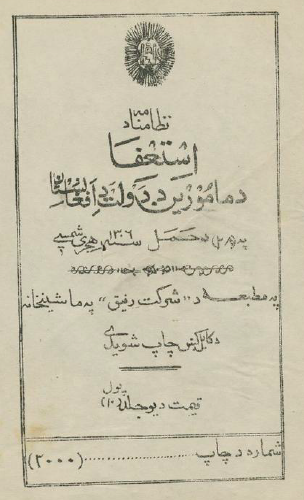 نظامنامه د
استعفا
د مامورین د دولت د افغانستان
حمل سنه ۱۳۰۶ هجری شمسی
په مطبعه د "شرکت رفیق" په ماشینخانه
د کابل کښی چاپ شویدی
قیمت د یو جلد (۱۰) پول
شماره د چاپ ............ (۲۰۰۰)